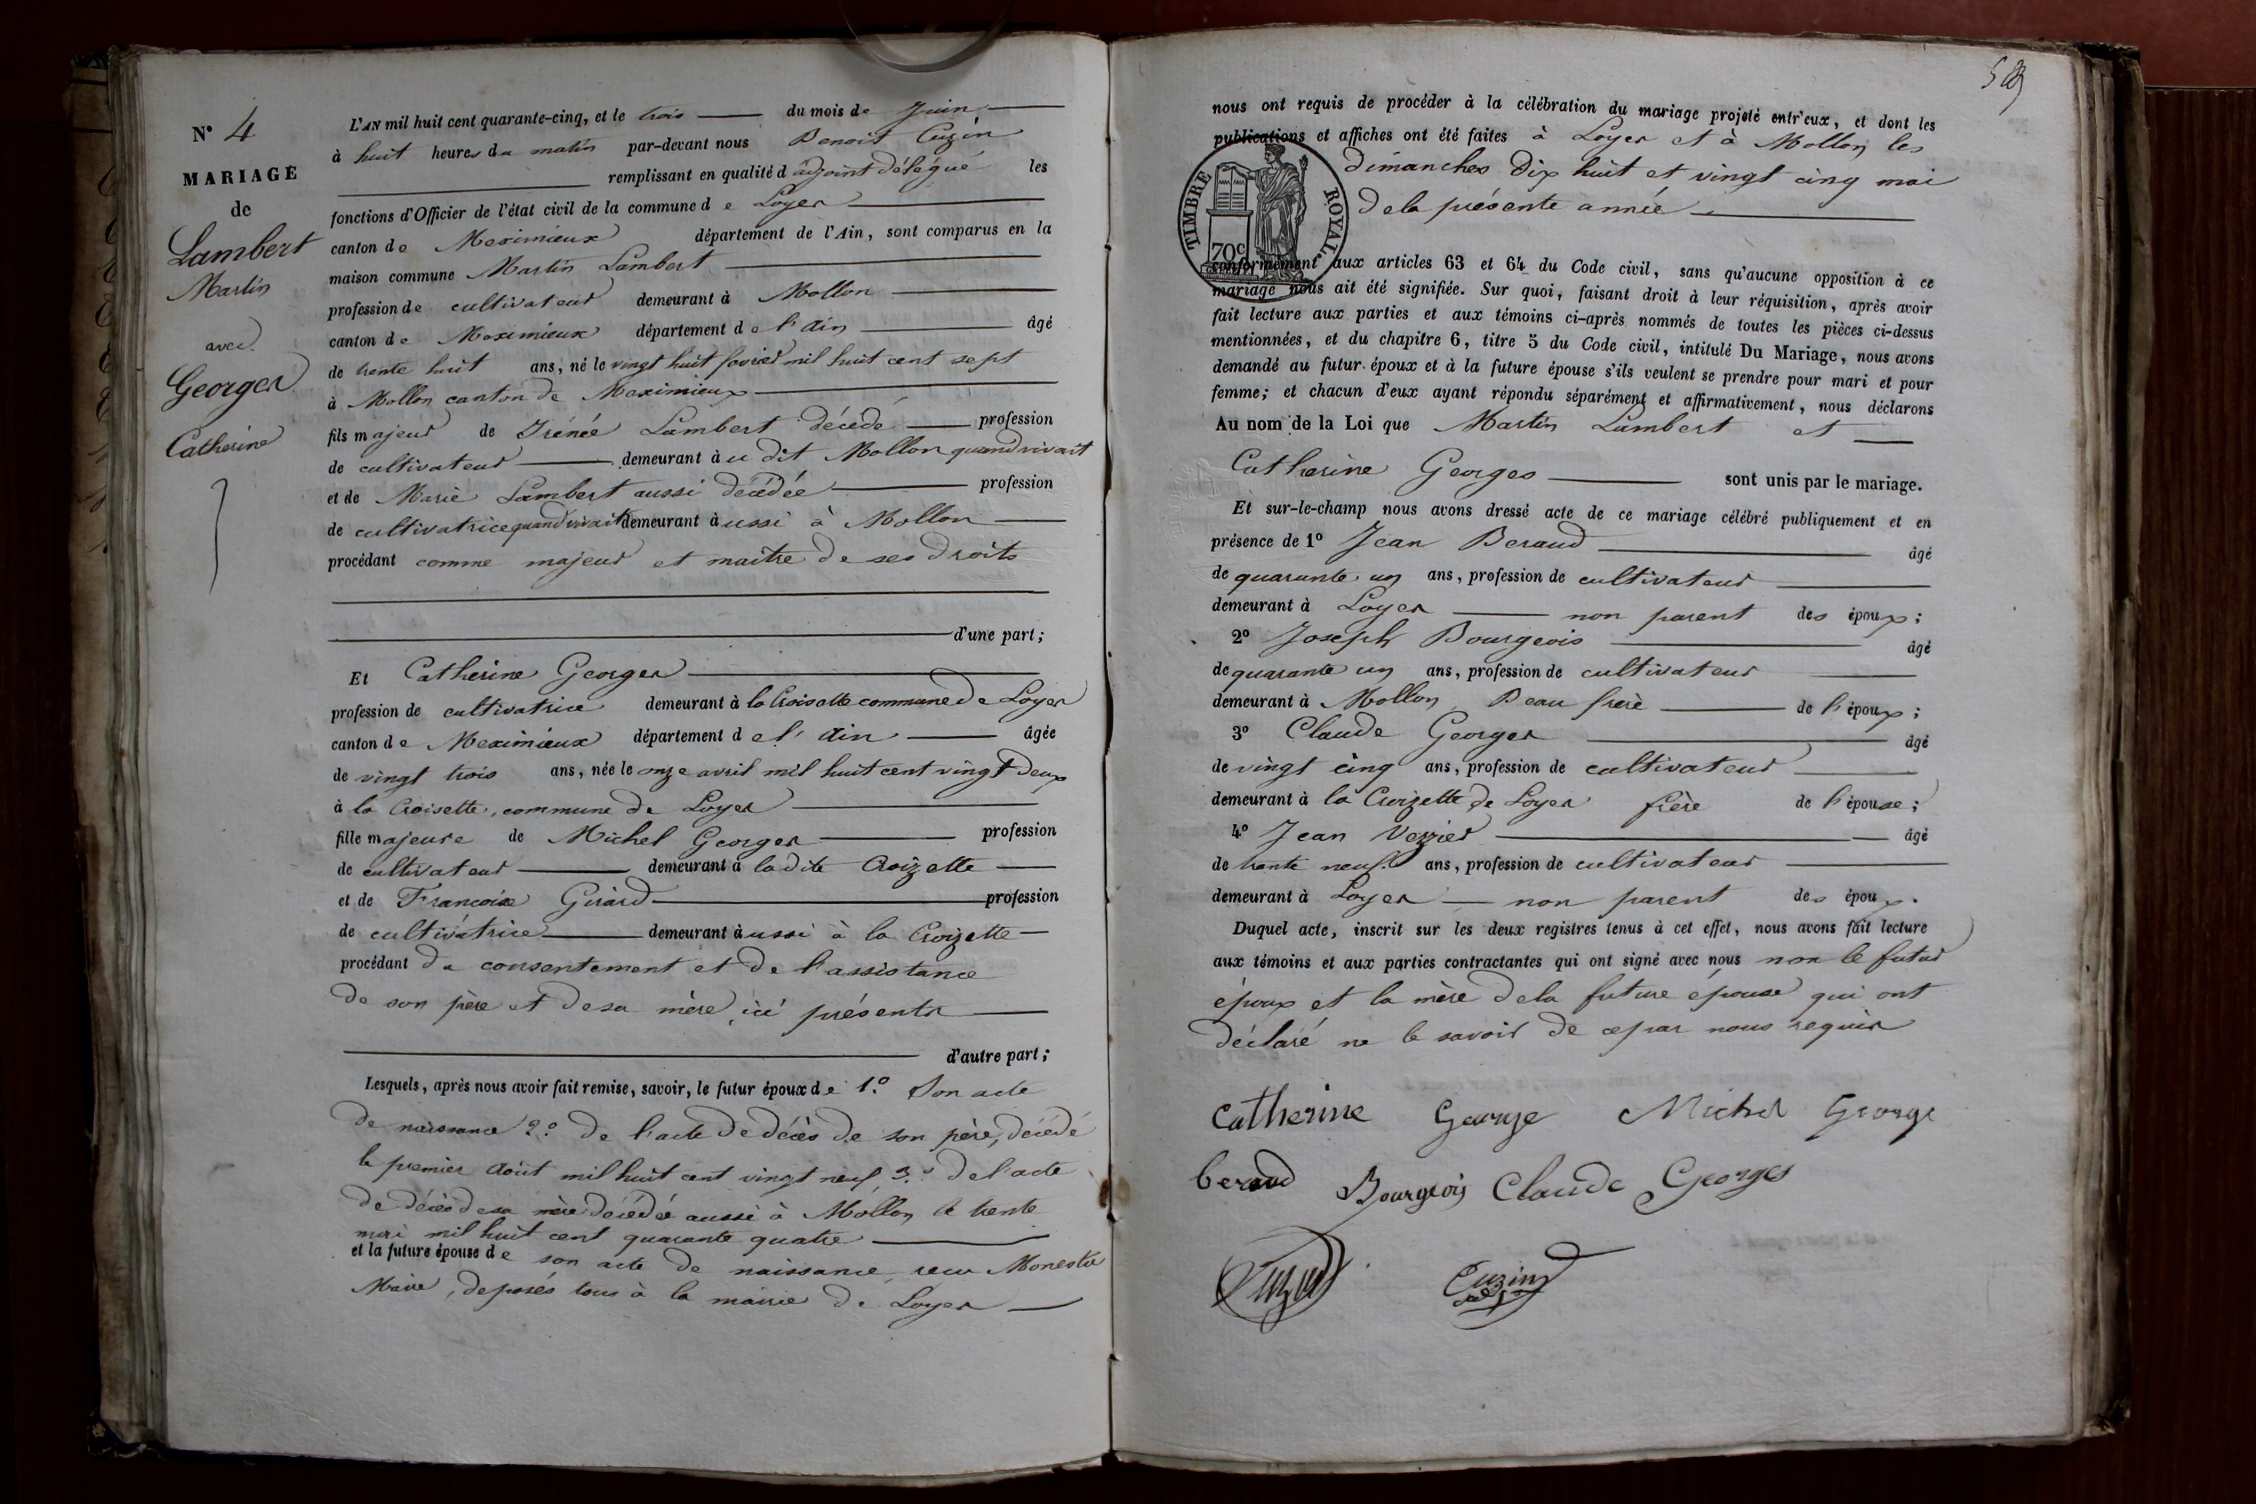 N° 4
MARIAGE
de
Lambert
Martin
avec
Georges
Catherine
L'AN mil huit cent quarante-cinq, et le trois du mois de Juin
à huit heures du matin par-devant nous Benoit Cuzin
remplissant en qualité d'adjoint délégué les
fonctions d'Officier de l'état civil de la commune de Loyes
canton de Meximieux département de l'Ain, sont comparus en la
maison commune Martin Lambert
profession de cultivateur demeurant à Mollon
canton de Meximieux département de l'Ain âgé
de trente huit ans, né le vingt huit fevrier mil huit cent sept
à Mollon canton de Meximieux
fils majeur de Irénée Lambert décédé profession
de cultivateur demeurant au dit Mollon quand vivait
et de Marie Lambert aussi décédée profession
de cultivatrice quand vivait demeurant aussi à Mollon
procédant comme majeur et maitre de ses droits
d'une part;
Et Catherine Georges
profession de cultivatrice demeurant à la Croisette commune de Loyes
canton de Meximieux département de l'Ain âgée
de vingt trois ans, née le onze avril mil huit cent vingt deux
à la Croisette, commune de Loyes
fille majeure de Michel Georges profession
de cultivateur demeurant à la dite Croizette
et de Francoise Girard profession
de cultivatrice demeurant aussi à la Croizette
procédant du consentement et de l'assistance
de son père et de sa mère ici présents
d'autre part;
Lesquels, après nous avoir fait remise, savoir, le futur époux de 1.° Son acte
de naissance 2.° de l'acte de décès de son père, décédé
le premier août mil huit cent vingt neuf 3.° de l'acte
de décès de sa mère décédée aussi à Mollon le trente
mai mil huit cent quarante quatre
et la future épouse de son acte de naissance, recu
Maire, deposés tous à la mairie de Loyes
nous ont requis de procéder à la célébration du mariage projeté entr'eux, et dont les
publications et affiches ont été faites à Loyes et à Mollon les
dimanches dix huit et vingt cinq mai
de la présente année
TIMBRE ROYAL
70c
conformément aux articles 63 et 64 du Code civil, sans qu'aucune opposition à ce
mariage nous ait été signifiée. Sur quoi, faisant droit à leur réquisition, après avoir
fait lecture aux parties et aux témoins ci-après nommés de toutes les pièces ci-dessus
mentionnées, et du chapitre 6, titre 5 du Code civil, intitulé Du Mariage, nous avons
demandé au futur époux et à la future épouse s'ils veulent se prendre pour mari et pour
femme; et chacun d'eux ayant répondu séparément et affirmativement, nous déclarons
Au nom de la Loi que Martin Lambert et
Catherine Georges sont unis par le mariage.
Et sur-le-champ nous avons dressé acte de ce mariage célébré publiquement et en
présence de 1° Jean Beraud âgé
de quarante un ans, profession de cultivateur
demeurant à Loyes non parent des époux;
2° Joseph Bourgeois âgé
de quarante un ans, profession de cultivateur
demeurant à Mollon Beau frère de l'époux;
3° Claude Georges âgé
de vingt cinq ans, profession de cultivateur
demeurant à la Croizette de Loyes frère de l'épouse;
4° Jean Verrier âgé
de trente neuf ans, profession de cultivateur
demeurant à Loyes non parent des époux.
Duquel acte, inscrit sur les deux registres tenus à cet effet, nous avons fait lecture
aux témoins et aux parties contractantes qui ont signé avec nous non le futur
époux et la mère de la future épouse qui ont
déclaré ne le savoir de ce par nous requis
Catherine George Michel George
beraud Bourgeois Claude Georges
Cuzin